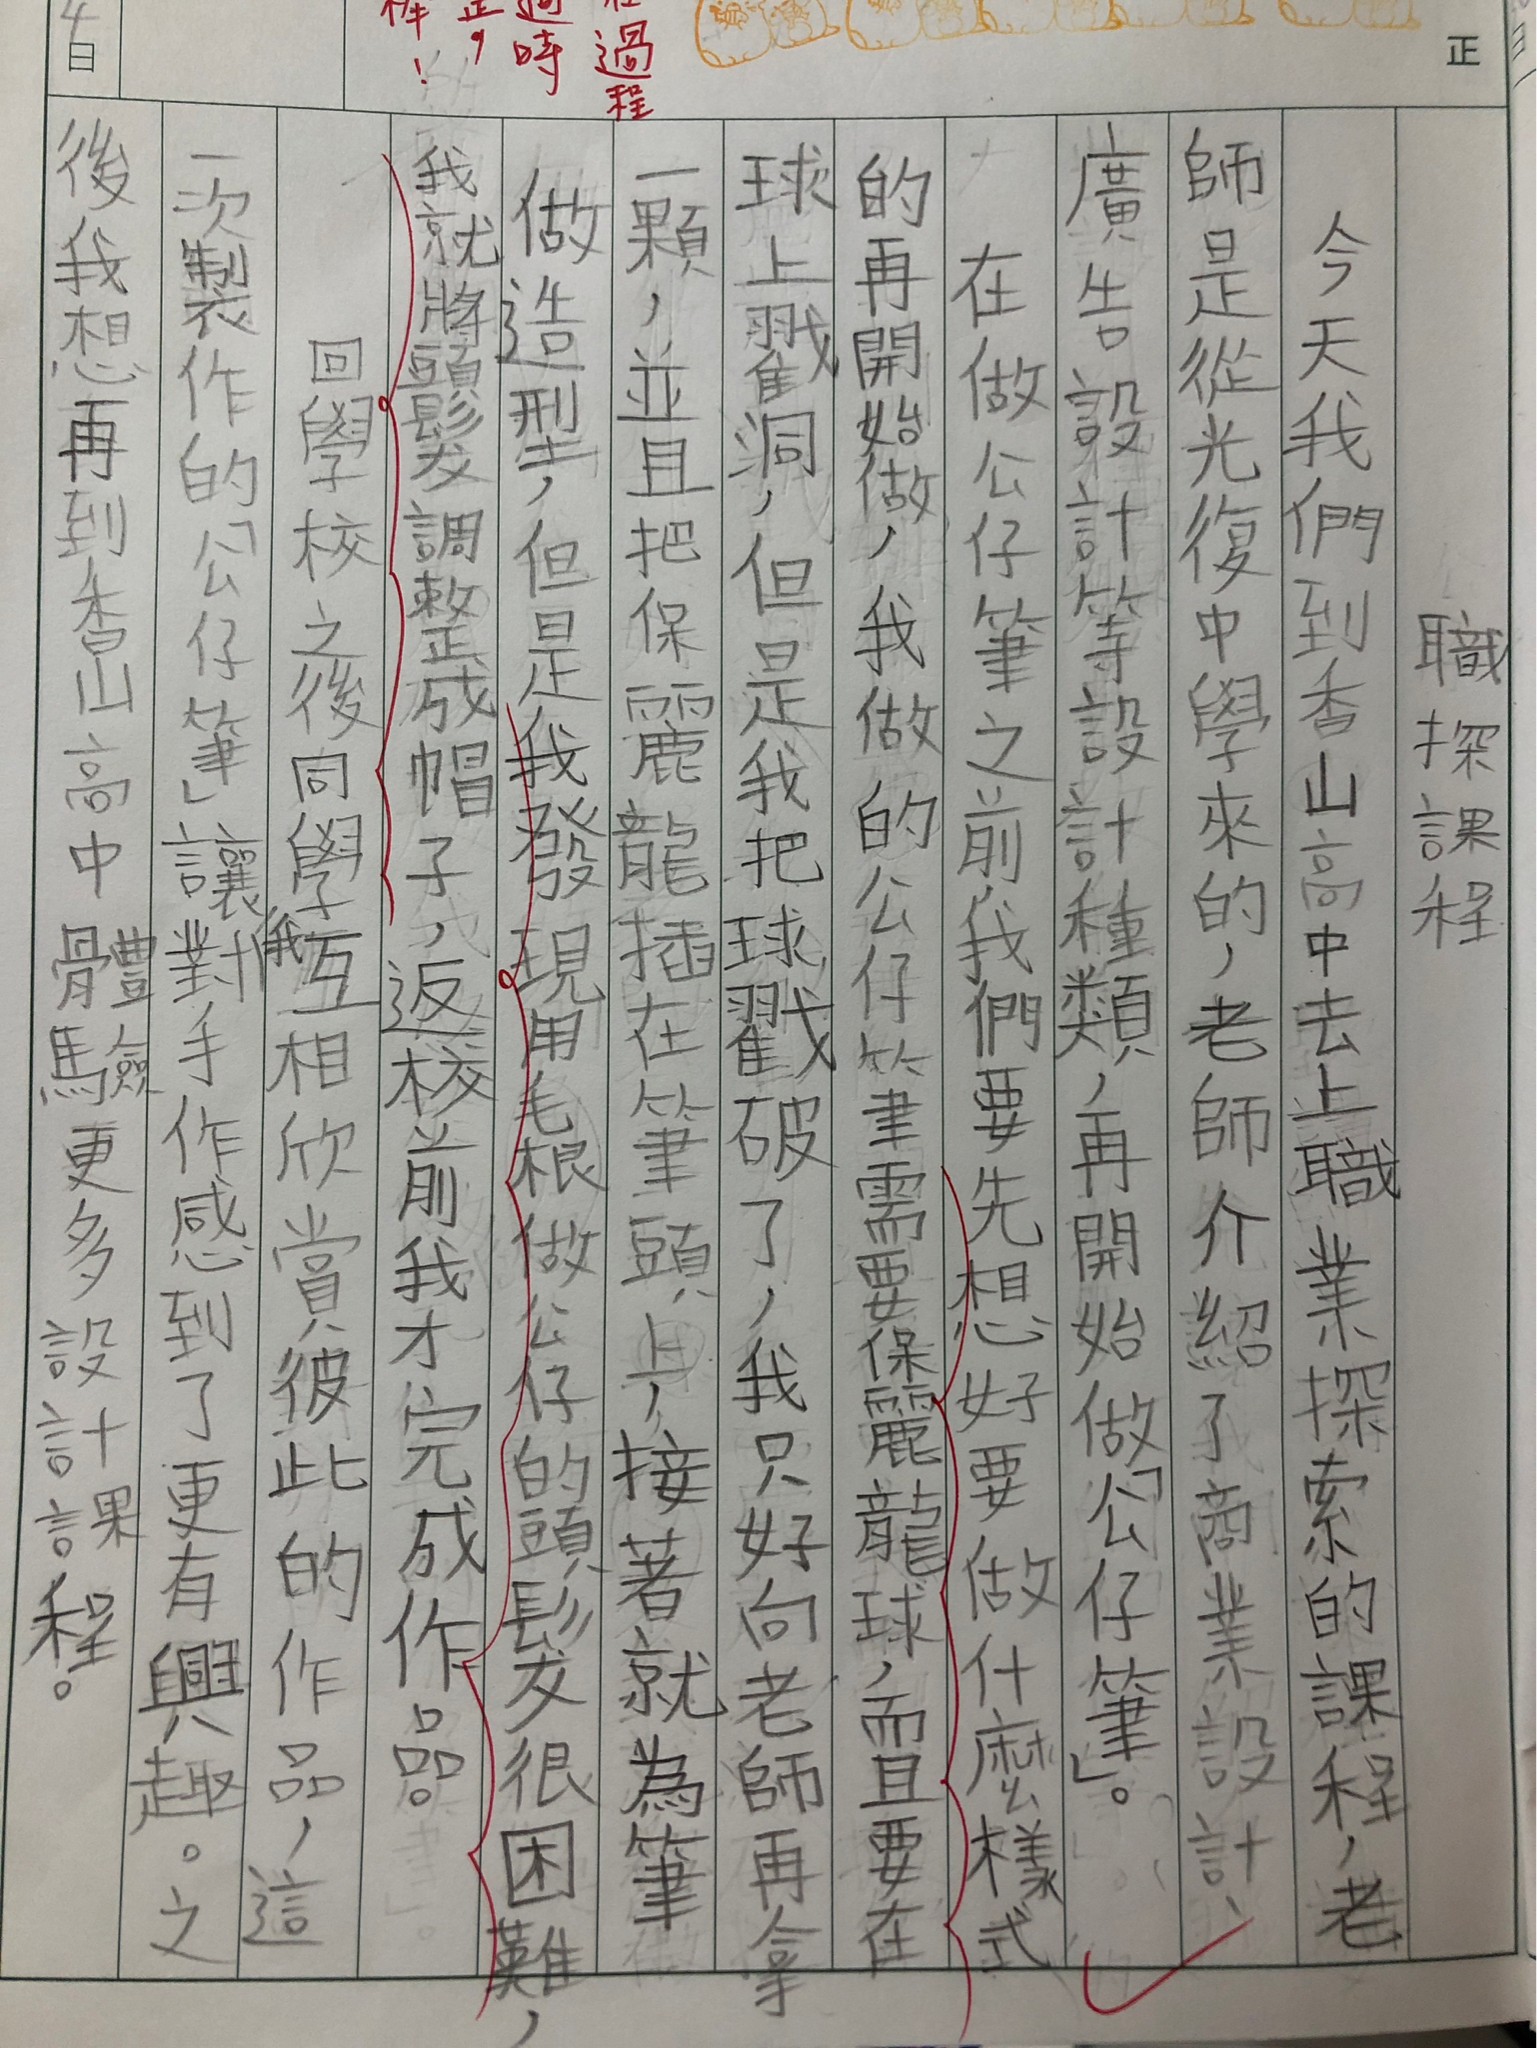 正
過程
過時
正，
棒！
4日
職探課程
今天我們到香山高中去上職業探索的課程，老
師是從光復中學來的，老師介紹了商業設計、
廣告設計等設計種類，再開始做「公仔筆」。
在做公仔筆之前我們要先想好要做什麼樣式
的再開始做，我做的公仔筆需要保麗龍球，而且要在
球上戳洞，但是我把球戳破了，我只好向老師再拿
一顆，並且把保麗龍插在筆頭上，接著就為筆
做造型，但是我發現用毛根做公仔的頭髮很困難，
我就將頭髮調整成帽子，返校前我才完成作品。
回學校之後同學互相欣賞彼此的作品，這
一次製作的「公仔筆」讓我對手作感到了更有興趣。之
後我想再到香山高中體驗更多設計課程。